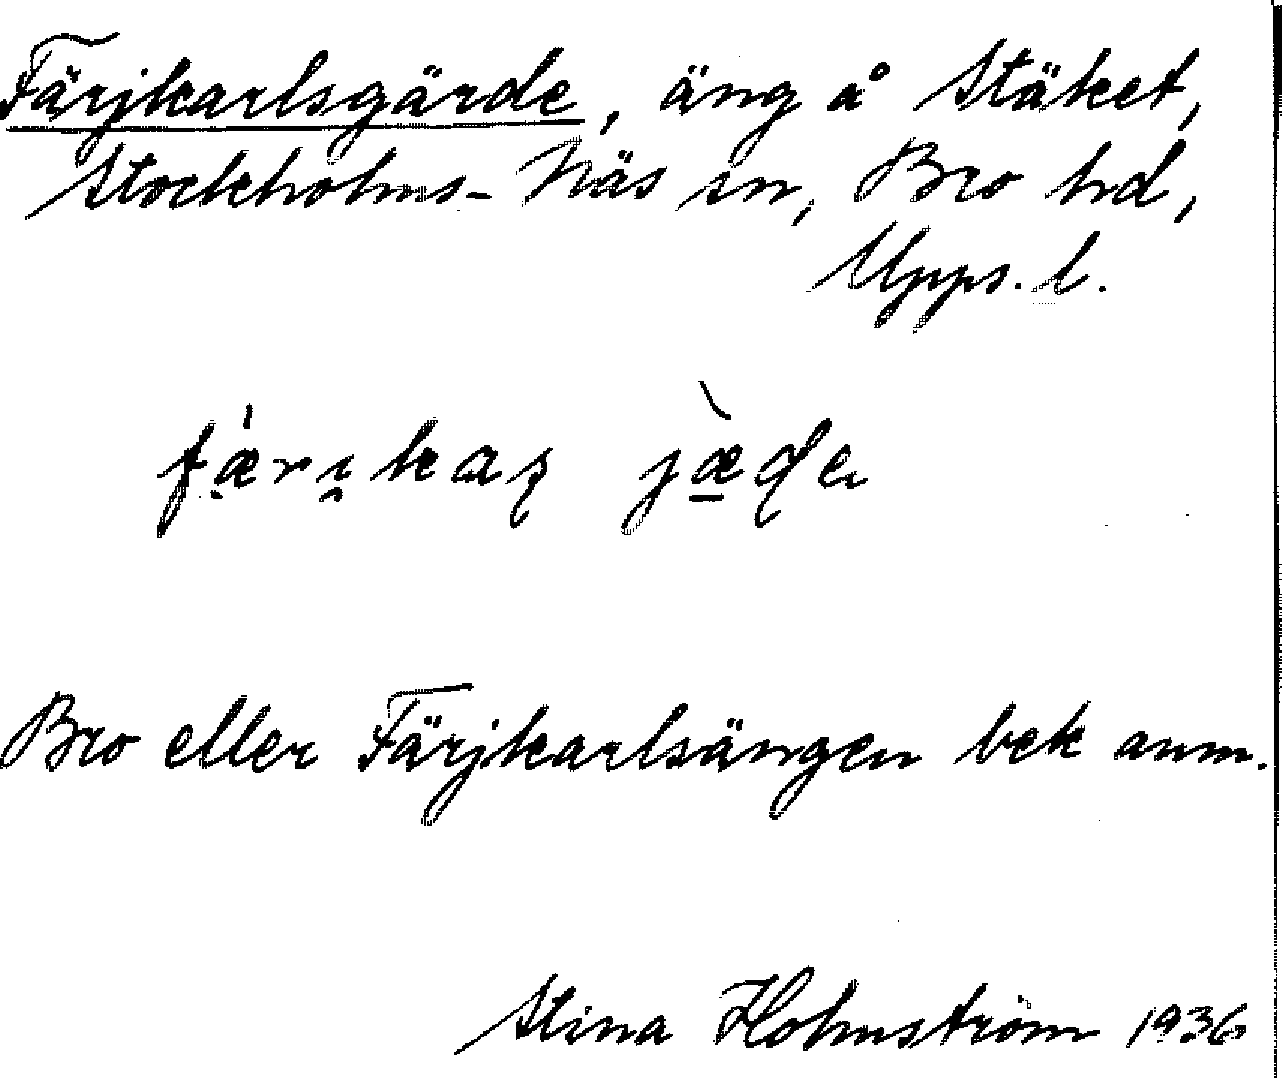 Färjkarlsgärde, äng å Stäket,
Stockholms-Näs sn, Bro hd,
Upps. l.
Bro eller Färjkarlsängen bek anm.
Stina Holmström 1936